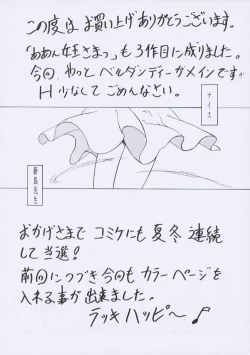 この度は お買い上げありがとうございます。
「ああん女王さまっ」も3作目に成りました。
今回、やっとベルダンディーがメインですが
H少なくしてごめんなさい。
ナイス
藤島先生
おかげさまで コミケにも 夏冬 連続
して当選!
前回につづき今回も カラーページを
入れる事が出来ました。
ラッキハッピ〜♪